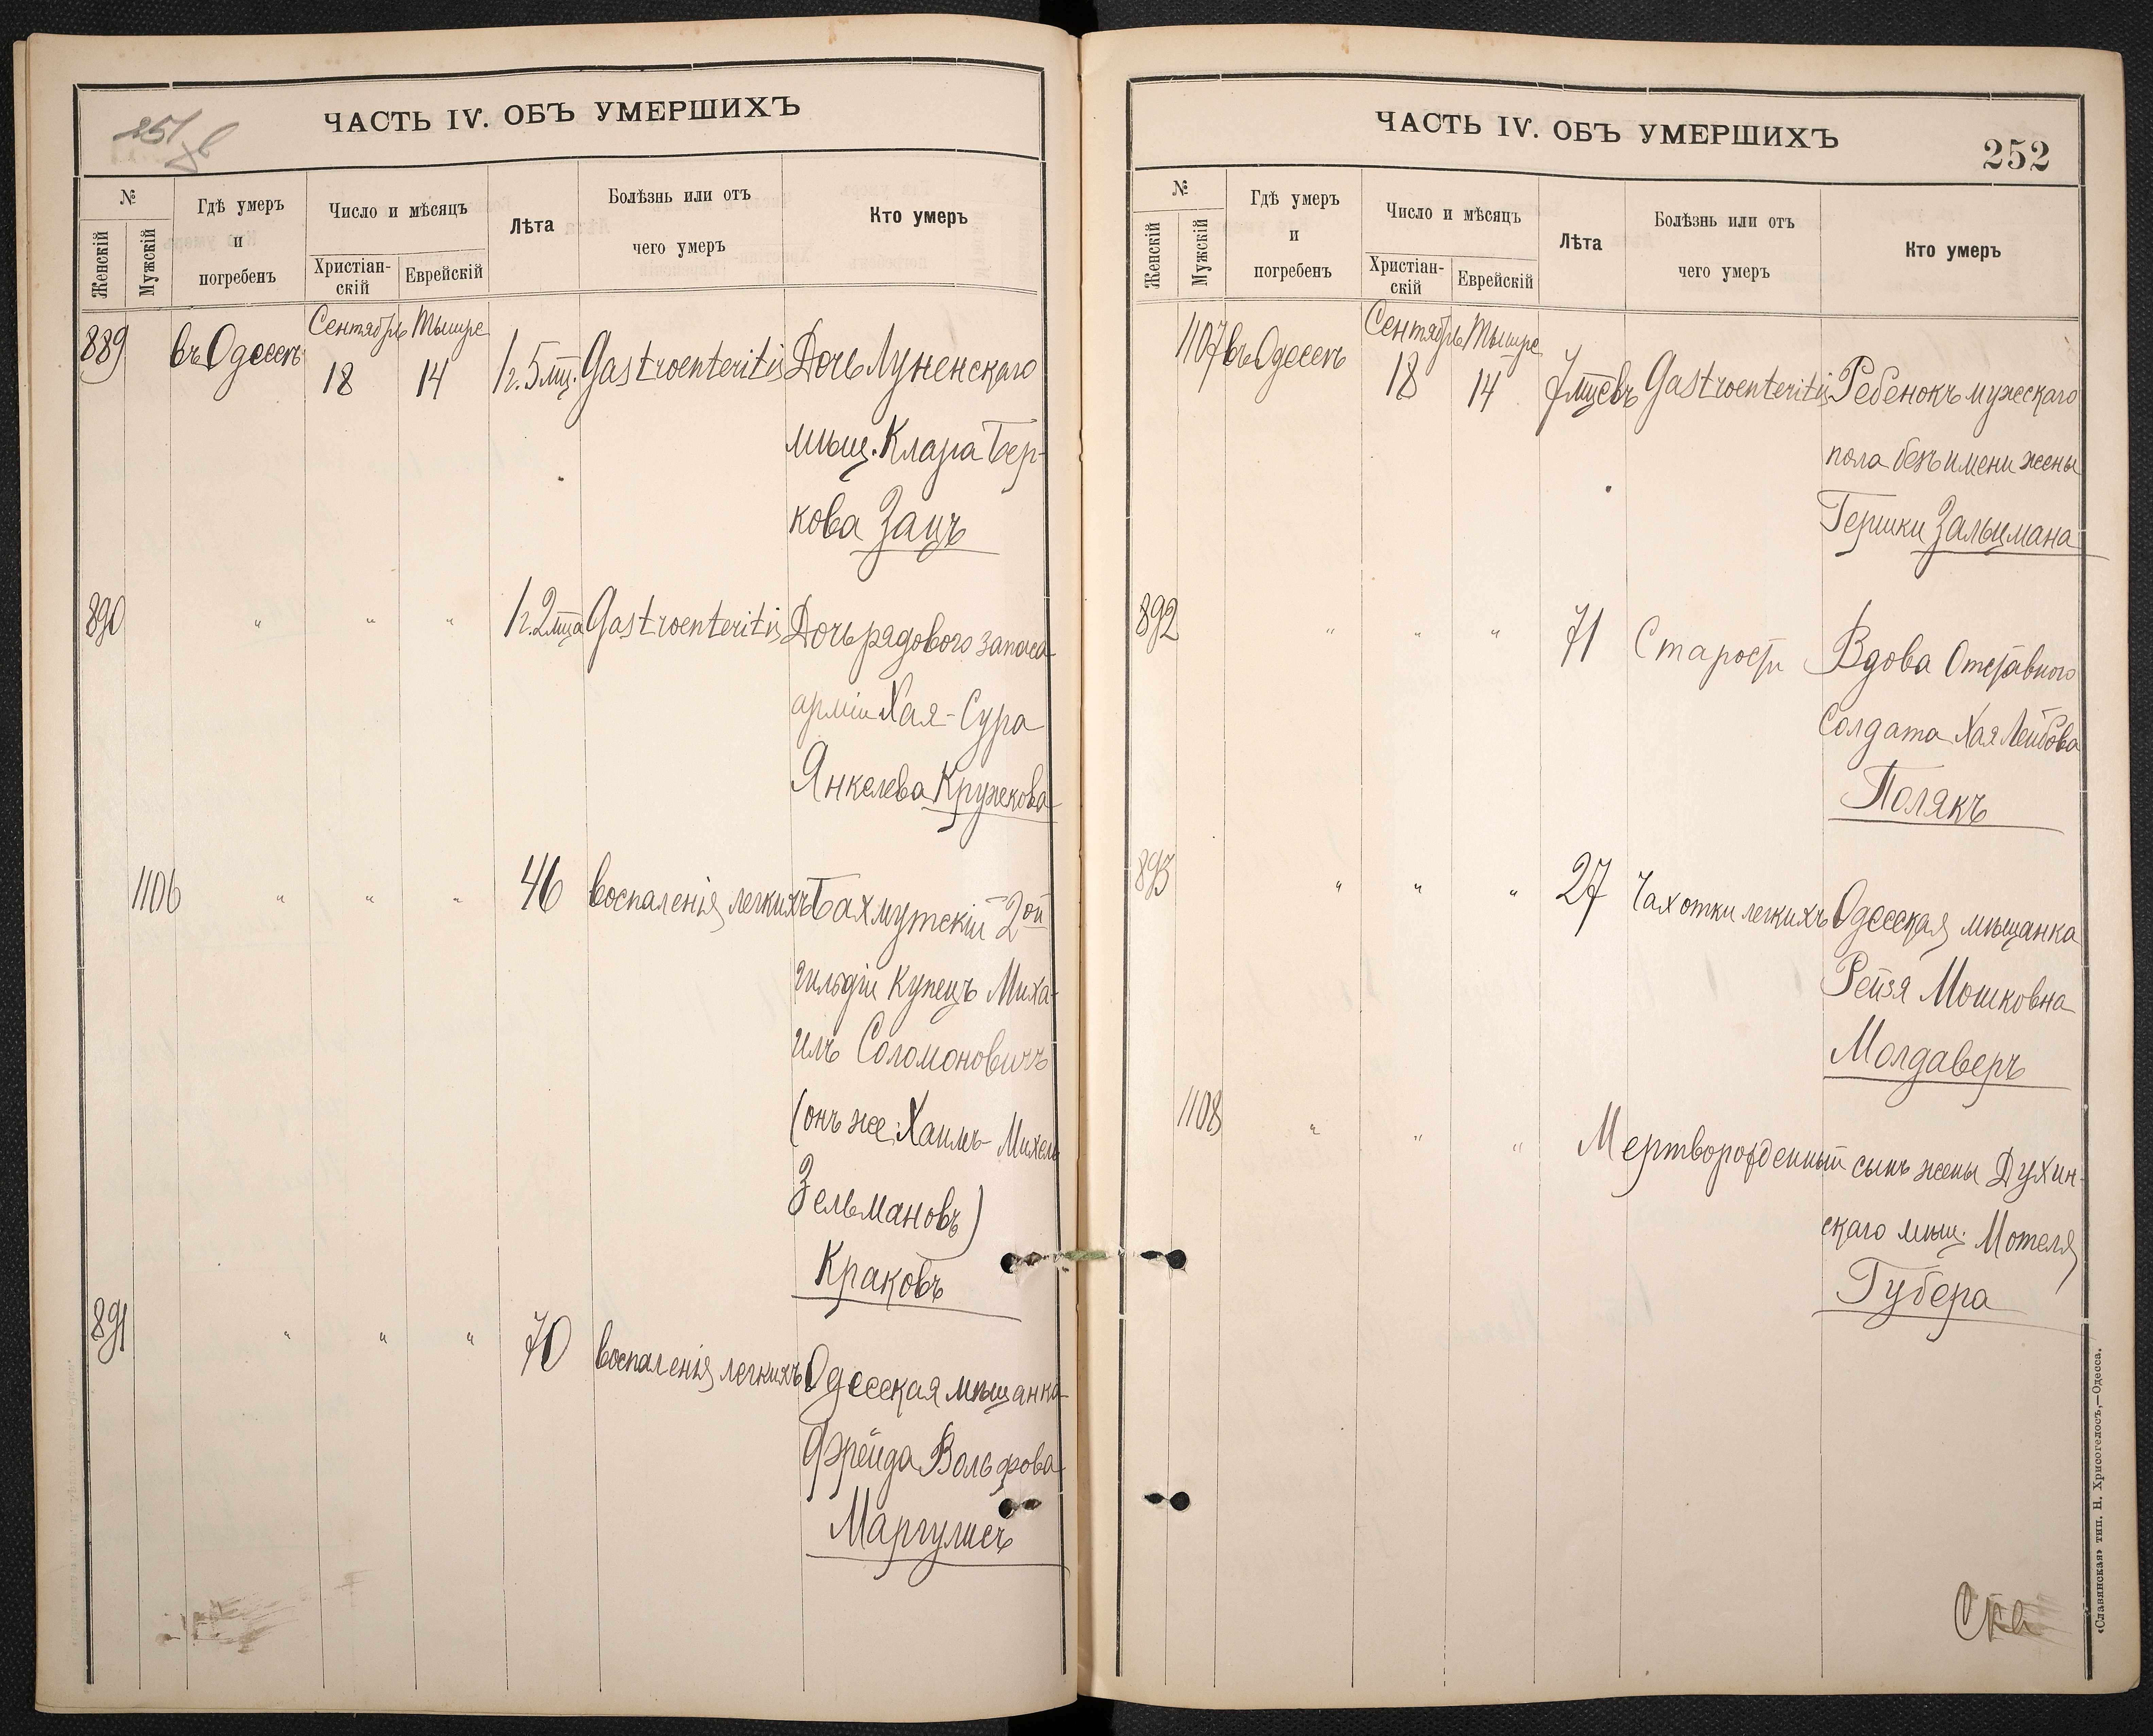 251 об
ЧАСТЬ IV. ОБЪ УМЕРШИХЪ
№
Женскій
Мужскій
Гдѣ умеръ
и
погребенъ
Число и мѣсяцъ
Христіан-
скій
Еврейскій
Лѣта
Болѣзнь или отъ
чего умеръ
Кто умеръ
Сентябрь Тышре
889 въ Одессѣ 18 14 1 г. 5 мц. Gastroenteritis Дочь Луненскаго
мѣщ. Клара Бер-
кова Зацъ
890 " " " 1 г. 2 мца Gastroenteritis Дочь рядового запаса
арміи Хая-Сура
Янкелева Кружкова
1106 " " " 46 воспаленія легкихъ Бахмутскій 2ой
гильдіи купецъ Миха-
илъ Соломоновичъ
(онъ же: Хаимъ-Михель
Зельмановъ)
Краковъ
891 " " " 70 воспаленія легкихъ Одесская мѣщанка
Фрейда Вольфова
Маргулисъ
ЧАСТЬ IV. ОБЪ УМЕРШИХЪ
252
№
Женскій
Мужскій
Гдѣ умеръ
и
погребенъ
Число и мѣсяцъ
Христіан-
скій
Еврейскій
Лѣта
Болѣзнь или отъ
чего умеръ
Кто умеръ
Сентябрь Тышре
1107 въ Одессѣ 18 14 7 мцевъ Gastroenteritis Ребенокъ мужескаго
пола безъ имени жены
Гершки Зальцмана
892 " " " 71 Старости Вдова Отставного
Солдата Хая Лейбова
Полякъ
893 " " " 27 Чахотки легкихъ Одесская мѣщанка
Рейзя Мошковна
Молдаверъ
1108 " " " Мертворожденный сынъ жены Духин-
скаго мѣщ. Мотеля
Губера
«Славянская» тип. Н. Хрисогелосъ,—Одесса.